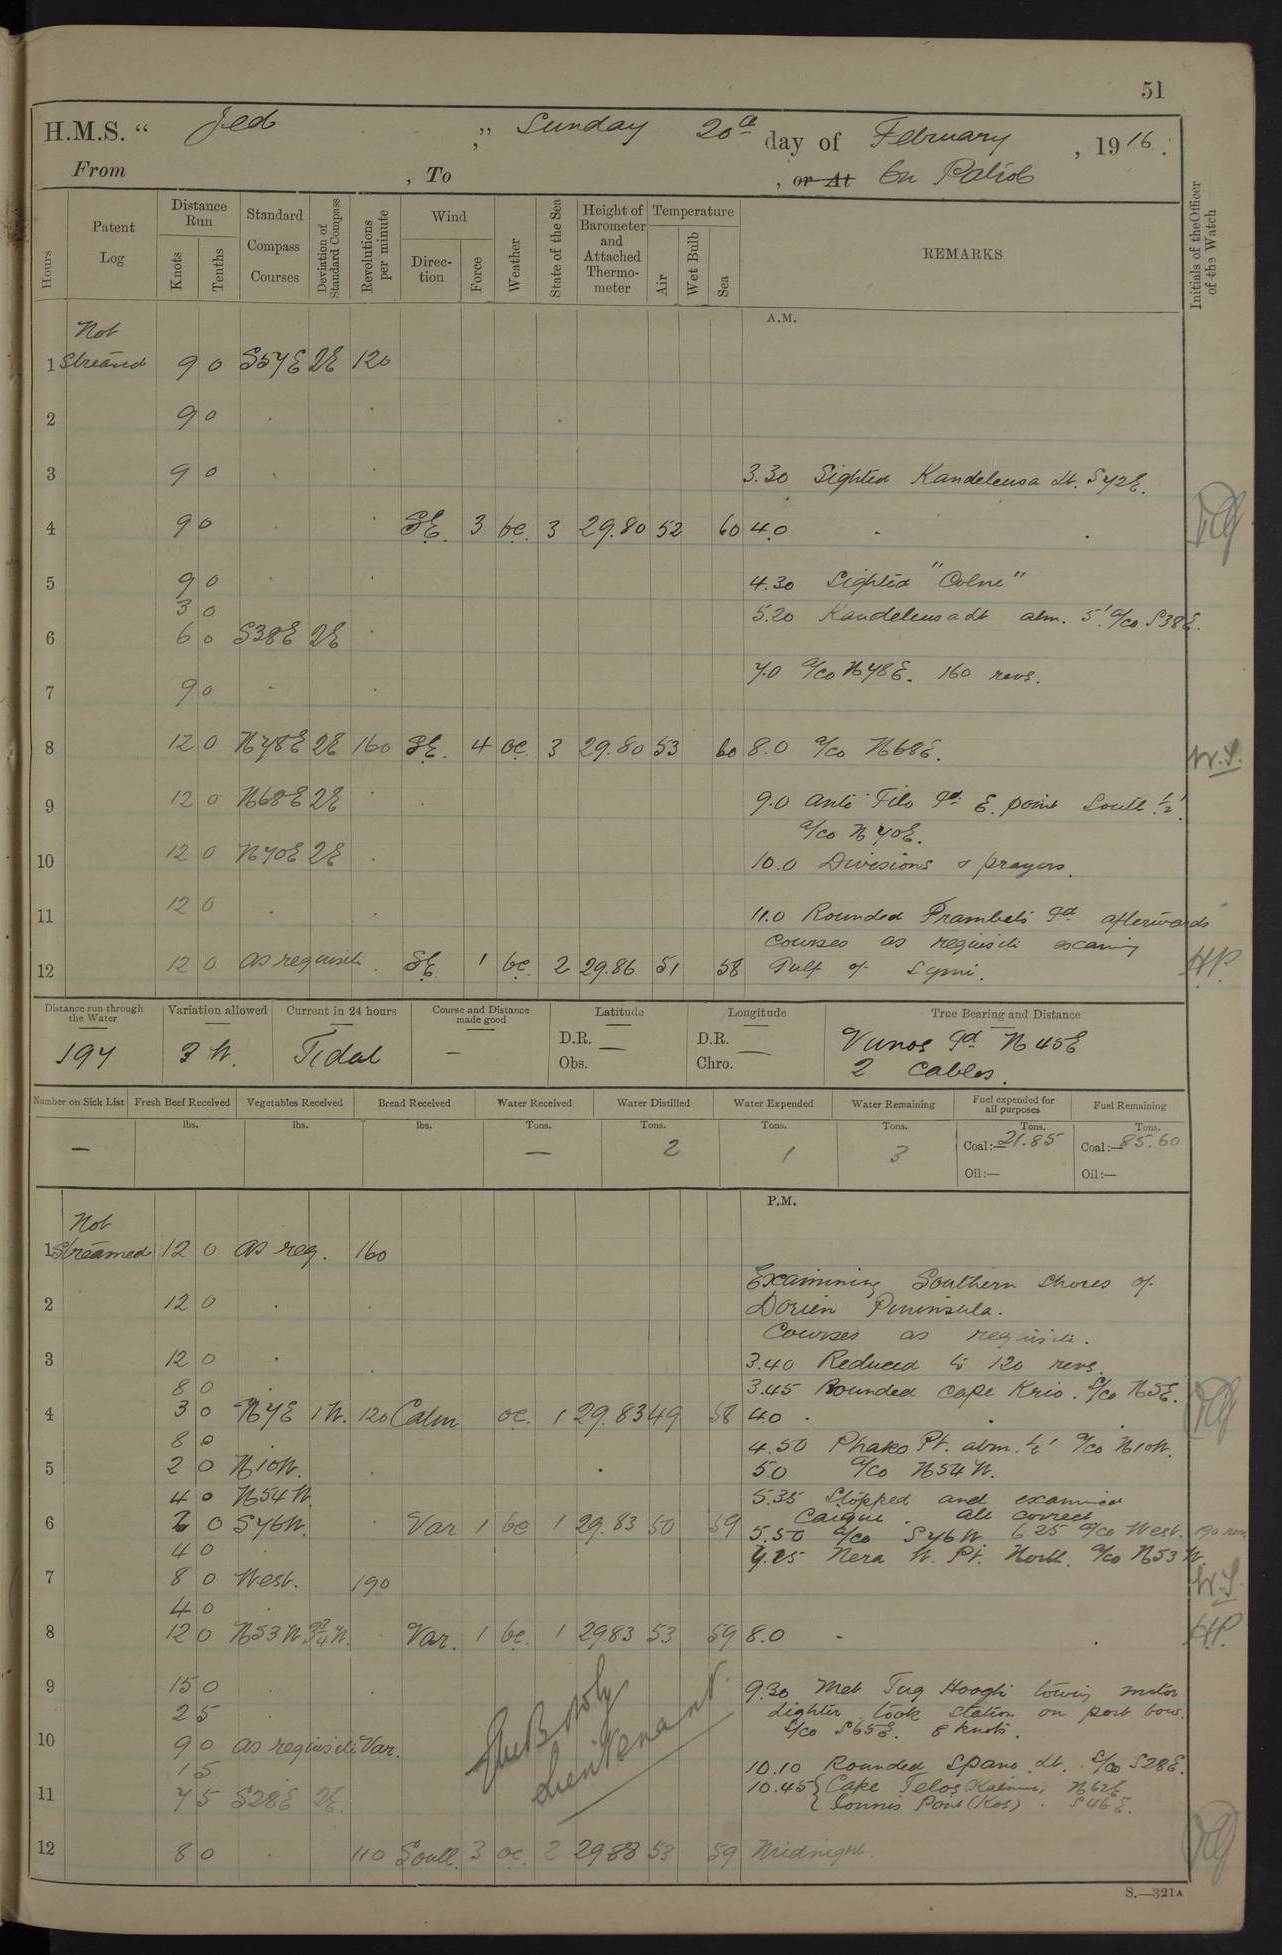 51
H.M.S. " Jed " Sunday 20th day of February, 1916.
From , To , or At On Patrol
Hours
Patent Log
Distance Run
Knots
Tenths
Standard Compass Courses
Deviation of Standard Compass
Revolutions per minute
Wind
Direction
Force
Weather
State of the Sea
Height of Barometer and Attached Thermometer
Temperature
Air
Wet Bulb
Sea
REMARKS
Initials of the Officer of the Watch
A.M.
Not
1 Streamed 9 0 S57E 2E 120
2 9 0 . .
3 9 0 . . 3.30 Sighted Kandeleusa Lt. S42E.
4 9 0 . SE. 3 bc. 3 29.80 52 60 4.0 . .
5 9 0 . . 4.30 Sighted "Colne"
3 0 5.20 Kandeleusa Lt abm. 5'. a/co S38E.
6 6 0 S38E 2E .
7.0 a/co N78E. 160 revs.
7 9 0 . .
8 12 0 N78E 2E 160 SE. 4 oc. 3 29.80 53 60 8.0 a/co N68E. W.S.
9 12 0 N68E 2E . 9.0 Anti Tilo Id E. point South ½'.
a/co N70E.
10 12 0 N70E 2E . 10.0 Divisions & prayers.
11 12 0 . . 11.0 Rounded Prambeli Id afterwards
courses as requisite
12 12 0 as requisite . SE. 1 bc. 2 29.86 51 58 Gulf of Symi. H.P.
Distance run through the Water
Variation allowed
Current in 24 hours
Course and Distance made good
Latitude
Longitude
True Bearing and Distance
197 3 W. Tidal — D.R. — Obs. D.R. — Chro. Vunos Id N45E
2 Cables.
Number on Sick List
Fresh Beef Received
Vegetables Received
Bread Received
Water Received
Water Distilled
Water Expended
Water Remaining
Fuel expended for all purposes
Fuel Remaining
lbs. lbs. lbs. Tons. Tons. Tons. Tons. Tons. Tons.
— — 2 1 3 Coal:— 21.85 Coal:— 85.60
Oil:— Oil:—
P.M.
Not
1 Streamed 12 0 as req. 160
Examining Southern shores of
2 12 0 . . Dorien Peninsula.
Courses as requisite.
3 12 0 . 3.40 Reduced to 120 revs.
8 0 . 3.45 Rounded Cape Krio. a/co N5E.
4 3 0 N7E 1W. 120 Calm oc. 1 29.83 49 58 4.0 . . .
8 0 4.50 Phako Pt. abm. ½' a/co N10W.
5 2 0 N10W. . . 5.0 a/co N54W.
4 0 N54W. 5.35 Stopped and examined
Caique. All correct
6 7 0 S76W. . Var 1 bc 1 29.83 50 59 5.50 a/co S76W 6.25 a/co West. 190 revs
4 0 . 7.25 Nera W. Pt. North. a/co N53W.
7 8 0 West. 190 W.S.
4 0 .
8 12 0 N53W. 3¾W. . Var. 1 bc. 1 29.83 53 59 8.0 - . H.P.
9 15 0 . . 9.30 Met Tug Hooghi towing motor
2 5 . lighter. took station on port bow.
a/co S65E. 8 knots.
10 9 0 as requisite Var.
1 5 . 10.10 Rounded Spano Lt. a/co S28E.
11 7 5 S28E 2E. 10.45 { Cape Telos (Kalimno) N62E
{ Ionnis Point (Kos) . S46E.
12 8 0 . 110 South. 3 oc. 2 29.83 53 59 Midnight.
Lieutenant
S.—321A